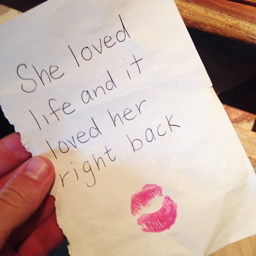 She loved
life and it
loved her
right back